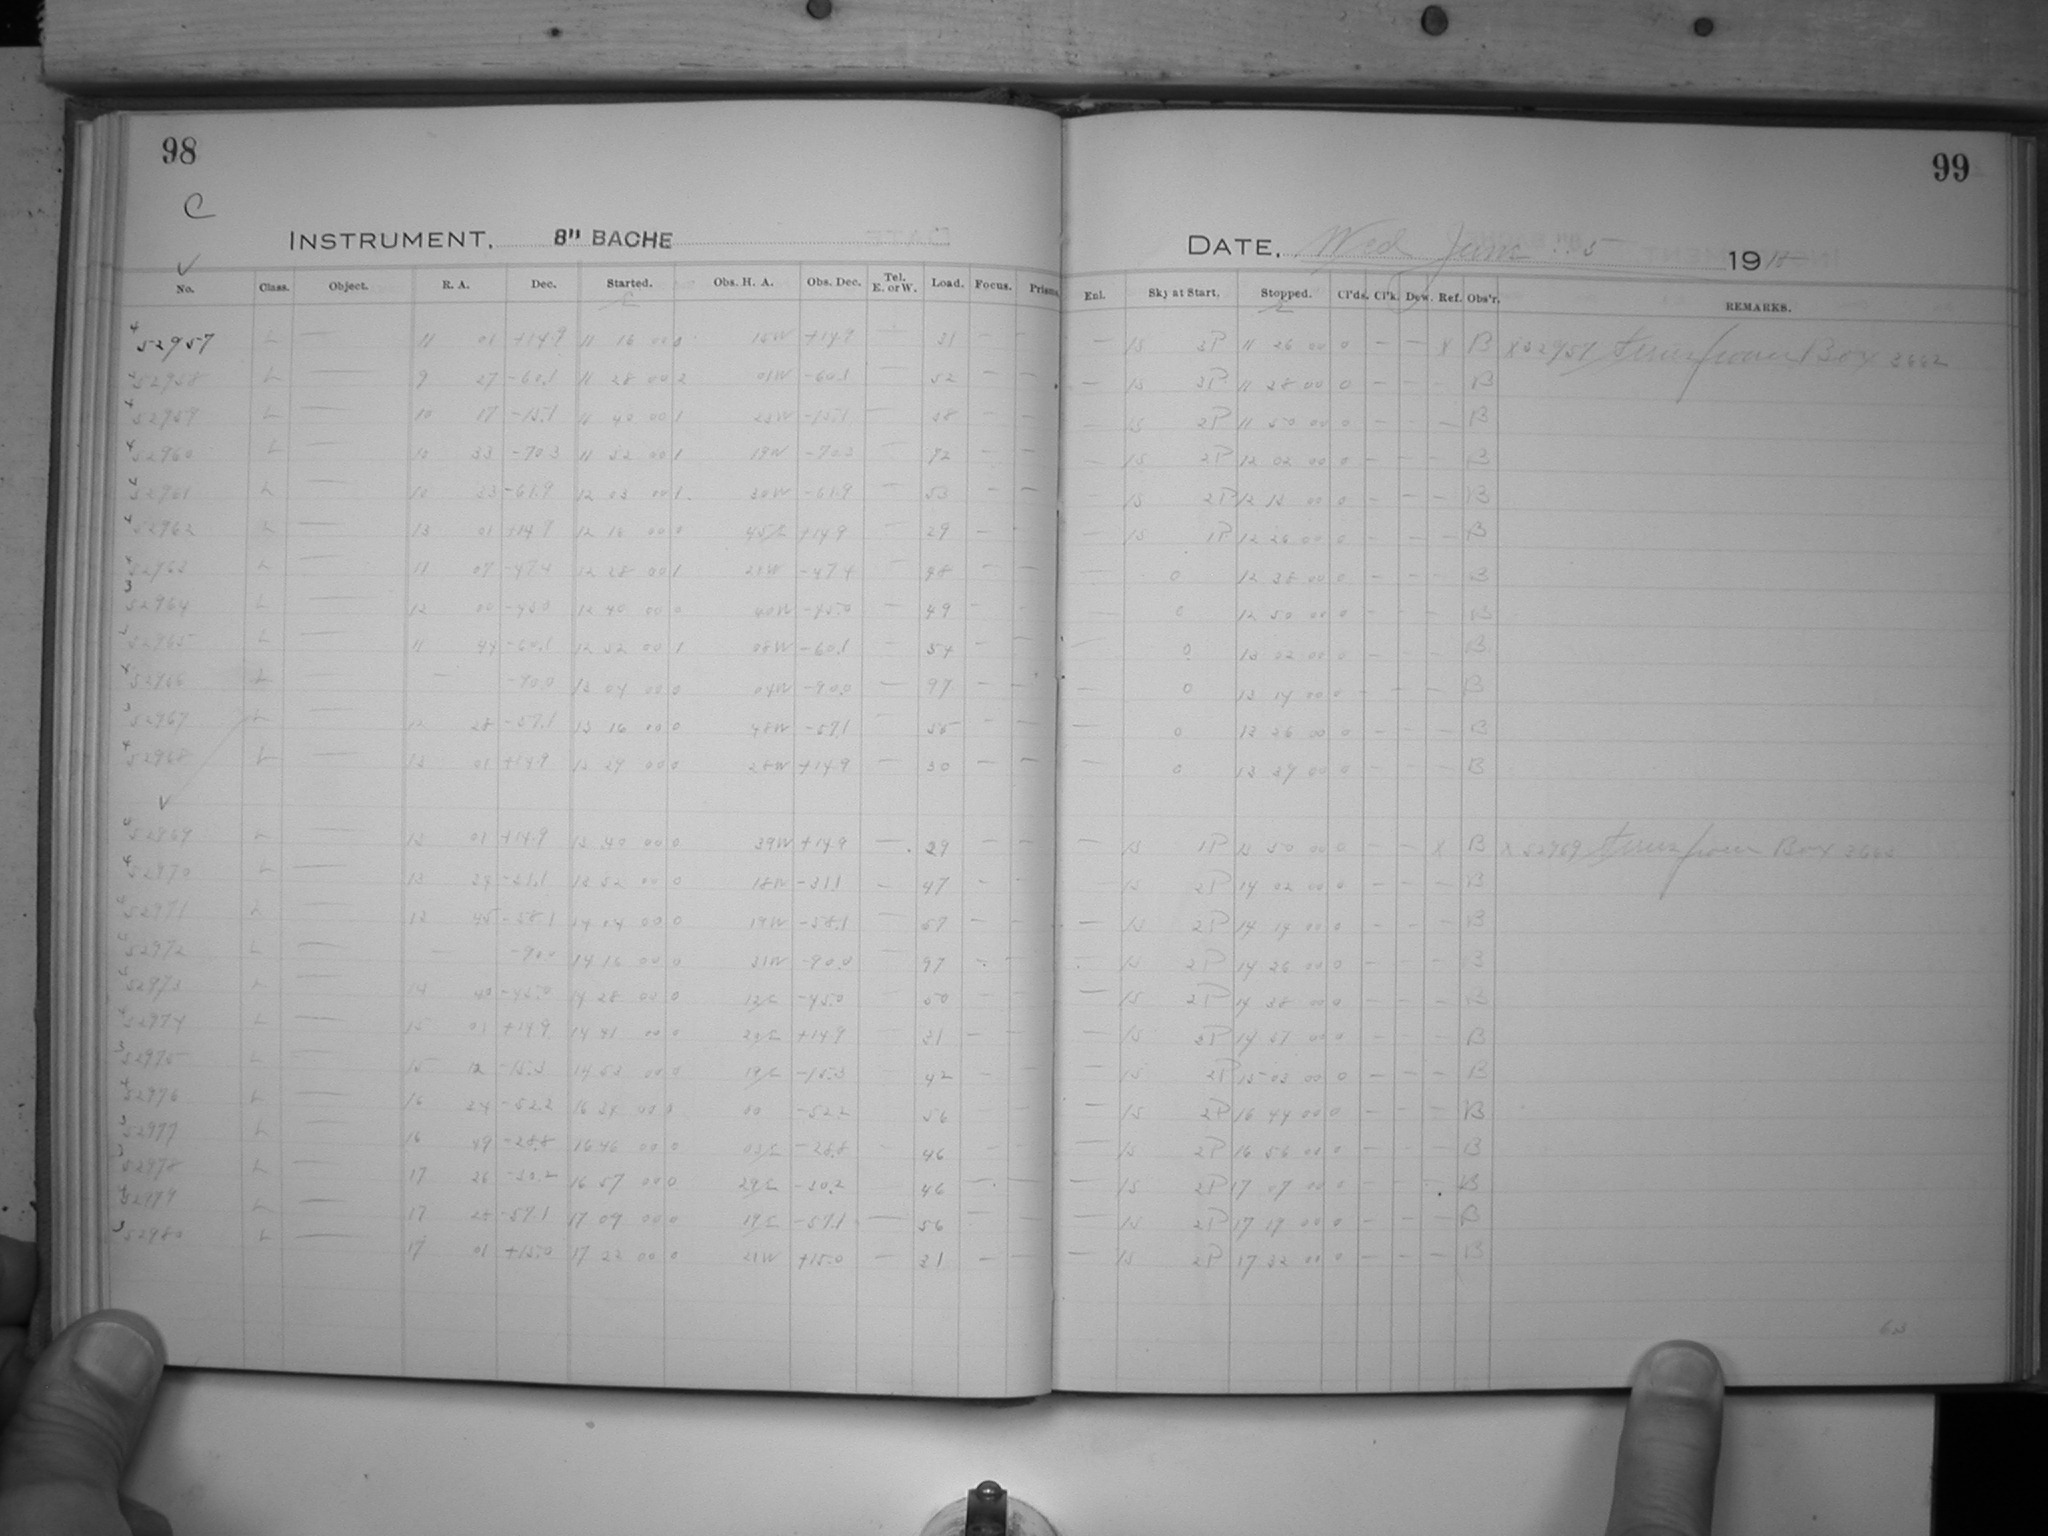 98
99
C
INSTRUMENT, 8" BACHE
DATE, Wed June 5 1918
No. Class. Object. R. A. Dec. Started. Obs. H. A. Obs. Dec. Tel. E. or W. Load. Focus. Prisms Enl. Sky at Start. Stopped. Cl'ds. Cl'k. Dew. Ref. Obs'r. REMARKS.
4 52957 L — 11 01 +14.9 11 16 00 15W +14.9 — 31 — — — 15 3P 11 26 00 0 — — X B X 52957 from Box 3662
52958 L — 9 27 -60.1 11 28 00 2 01W -60.1 — 52 — — — 15 3P 11 38 00 0 — — — B
52959 L — 10 17 -15.1 11 40 00 1 23W -15.1 — 38 — — — 15 2P 11 50 00 0 — — — B
4 52960 L — 10 33 -70.3 11 52 00 1 19W -70.3 — 92 — — — 15 2P 12 02 00 0 — — — B
52961 L — 10 33 -61.9 12 03 00 1 30W -61.9 — 53 — — — 15 2P 12 13 00 0 — — — B
4 52962 L — 13 01 +14.9 12 16 00 0 45E +14.9 — 29 — — — 15 1P 12 26 00 0 — — — B
52963 L — 11 07 -47.4 12 28 00 1 21W -47.4 — 48 — — — 0 12 38 00 0 — — — B
3 52964 L — 12 00 -45.0 12 40 00 0 40W -45.0 — 49 — — — 0 12 50 00 0 — — — B
52965 L — 11 44 -60.1 12 52 00 1 08W -60.1 — 54 — — — 0 13 02 00 0 — — — B
4 52966 L — — -90.0 13 04 00 0 04W -90.0 — 97 — — — 0 13 14 00 0 — — — B
3 52967 L — 12 28 -57.1 13 16 00 0 48W -57.1 — 55 — — — 0 13 26 00 0 — — — B
4 52968 L — 13 01 +14.9 13 29 00 0 28W +14.9 — 30 — — 0 13 39 00 0 — — — B
52969 L — 13 01 +14.9 13 40 00 0 39W +14.9 — 29 — — — 15 1P 13 50 00 0 — — X B X 52969 from Box 3663
4 52970 L — 13 34 -31.1 13 52 00 0 18W -31.1 — 47 — — — 15 2P 14 02 00 0 — — — B
52971 L — 13 45 -58.1 14 04 00 0 19W -58.1 — 57 — — — 15 2P 14 14 00 0 — — — B
52972 L — — -90.0 14 16 00 0 31W -90.0 97 — — 15 2P 14 26 00 0 — — — B
52973 L — 14 40 -45.0 14 28 00 0 12E -45.0 50 — — — 15 2P 14 38 00 0 — — — B
52974 L — 15 01 +14.9 14 41 00 0 20E +14.9 31 — — — 15 3P 14 51 00 0 — — — B
3 52975 L — 15 12 -15.3 14 53 00 0 19E -15.3 — 42 — — — 15 2P 15 03 00 0 — — — B
4 52976 L — 16 34 -52.2 16 34 00 0 00 -52.2 56 — 15 2P 16 44 00 0 — — — B
3 52977 L — 16 49 -28.8 16 46 00 0 03E -28.8 46 — — — 15 2P 16 56 00 0 — — — B
3 52978 L — 17 26 -30.2 16 57 00 0 29E -30.2 46 — — — 15 2P 17 07 00 0 — — — B
4 52979 L — 17 28 -57.1 17 09 00 0 19E -57.1 — 56 — — — 15 2P 17 19 00 0 — — — B
3 52980 L — 17 01 +15.0 17 22 00 0 21W +15.0 — 31 — — — 15 2P 17 32 00 0 — — — B
63